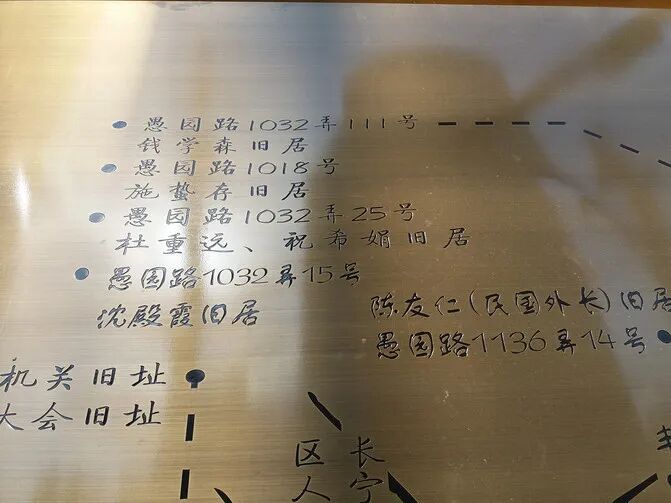 愚园路1032弄111号
钱学森旧居
愚园路1018号
施蛰存旧居
愚园路1032弄25号
杜重远、祝希娟旧居
愚园路1032弄15号
沈殿霞旧居
陈友仁(民国外长)旧居
愚园路1136弄14号
机关旧址
大会旧址
区长
人宁